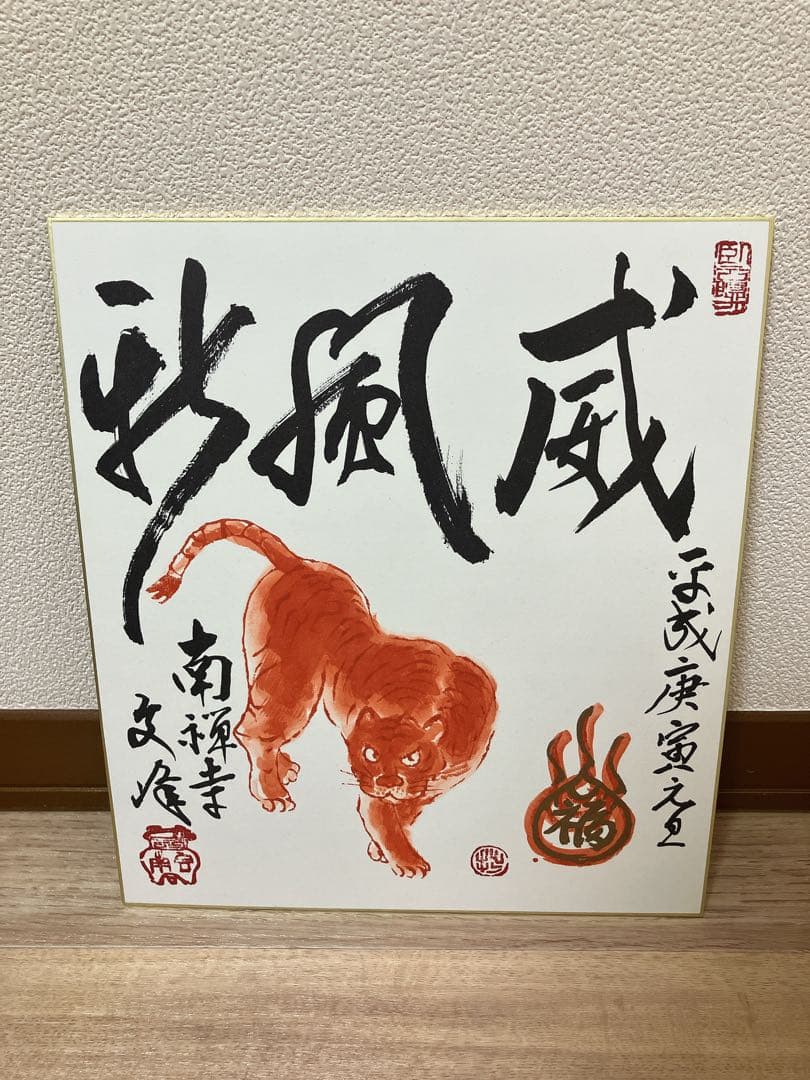 威風新
平成庚寅元旦
福
南禅寺
文峰